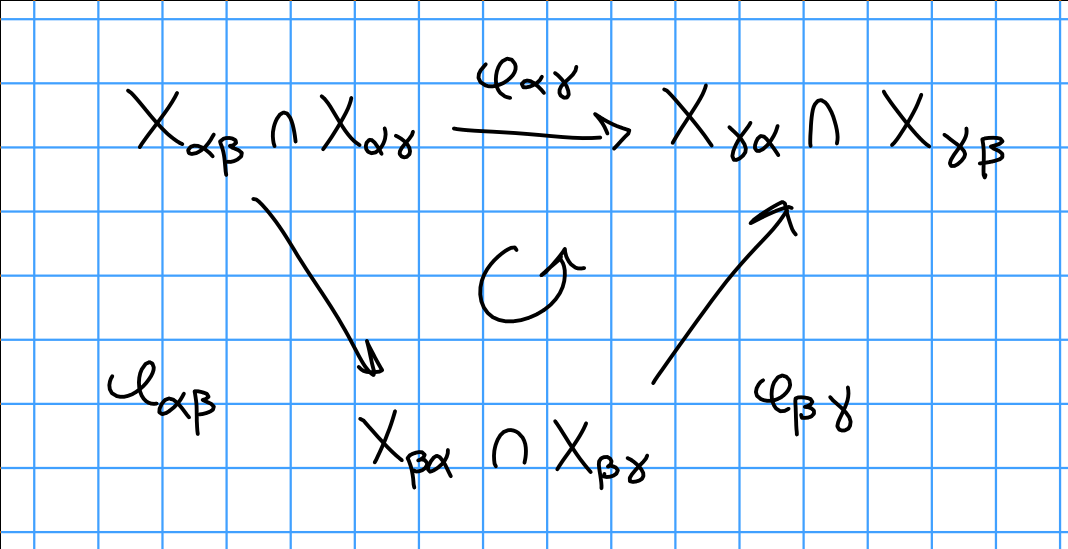 φ_αγ
X_αβ ∩ X_αγ → X_γα ∩ X_γβ
φ_αβ φ_βγ
X_βα ∩ X_βγ